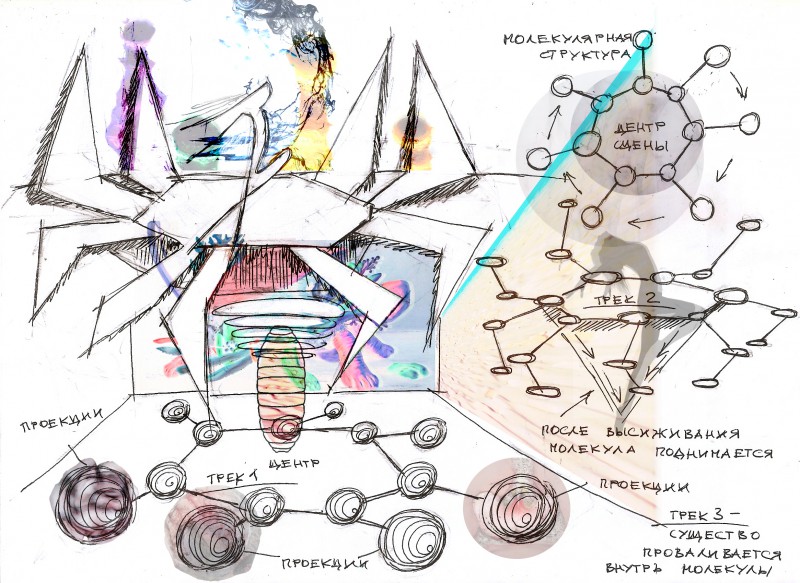 МОЛЕКУЛЯРНАЯ
СТРУКТУРА
ЦЕНТР
СЦЕНЫ
ТРЕК 2
ПОСЛЕ ВЫСИЖИВАНИЯ
МОЛЕКУЛА ПОДНИМАЕТСЯ
ПРОЕКЦИИ
ЦЕНТР
ТРЕК 1
ПРОЕКЦИИ
ПРОЕКЦИИ
ТРЕК 3 –
СУЩЕСТВО
ПРОВАЛИВАЕТСЯ
ВНУТРЬ МОЛЕКУЛЫ